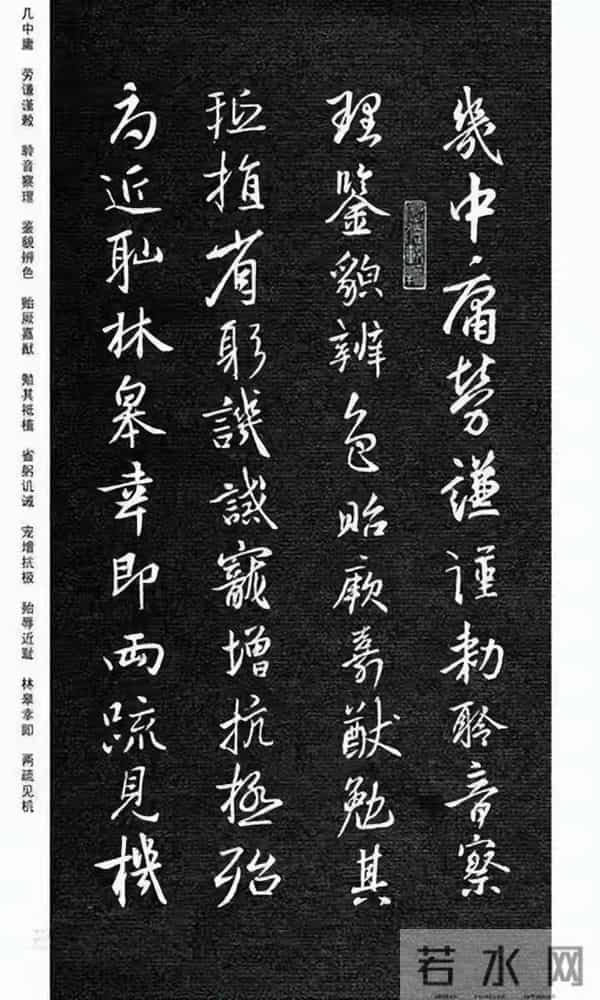 幾中庸勞謙謹勅聆音察
理鑒貌辨色貽厥嘉猷勉其
祗植省躬譏誡寵增抗極殆
辱近耻林皋幸即兩疏見機
几中庸 劳谦谨敕 聆音察理 鉴貌辨色 贻厥嘉猷 勉其祗植 省躬讥诫 宠增抗极 殆辱近耻 林皋幸即 两疏见机
若水网